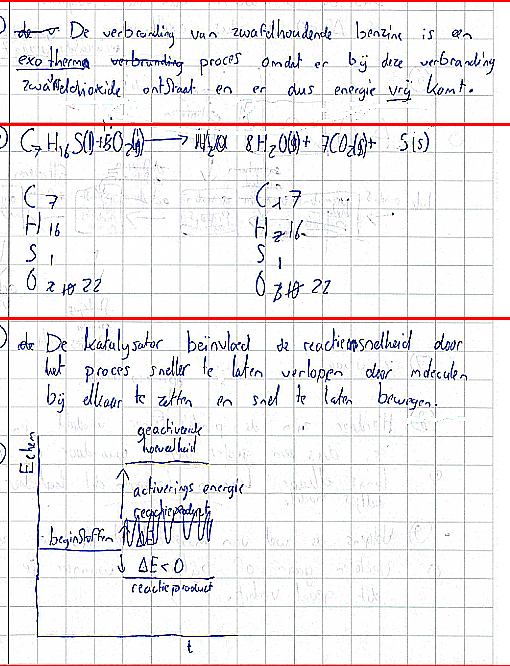 De verbranding van zwafelhoudende benzine is een
exotherm verbranding proces omdat er bij deze verbranding
zwafeldioxide ontstaat en er dus energie vrij komt.
C7H16S(l) + O2(g) → 8H2O(g) + 7CO2(g) + S(s)
C 7 C 7
H 16 H 16
S 1 S 1
O 22 O 22
De katalysator beinvloed de reactiesnelheid door
het proces sneller te laten verlopen door moleculen
bij elkaar te zetten en snel te laten bewegen.
Echem
geactiveerde
hoeveelheid
activerings energie
reactieproduct
beginstoffen ΔE
ΔE < 0
reactieproduct
t